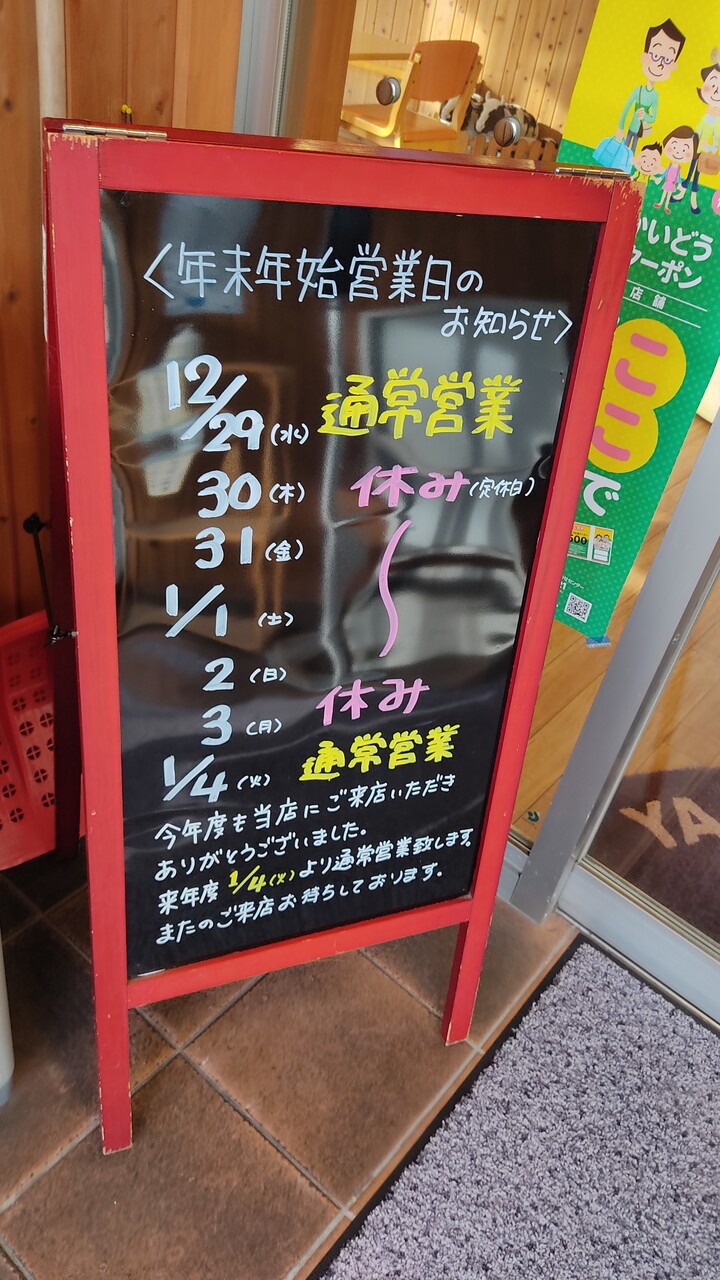 〈年末年始営業日の
お知らせ〉
12/29(水) 通常営業
30(木) 休み(定休日)
31(金) 〜
1/1(土)
2(日) 休み
3(月)
1/4(火) 通常営業
今年度も当店にご来店いただき
ありがとうございました。
来年度1/4(火)より通常営業致します。
またのご来店お待ちしております。
かいどう
クーポン
店舗
ここ
で
YA